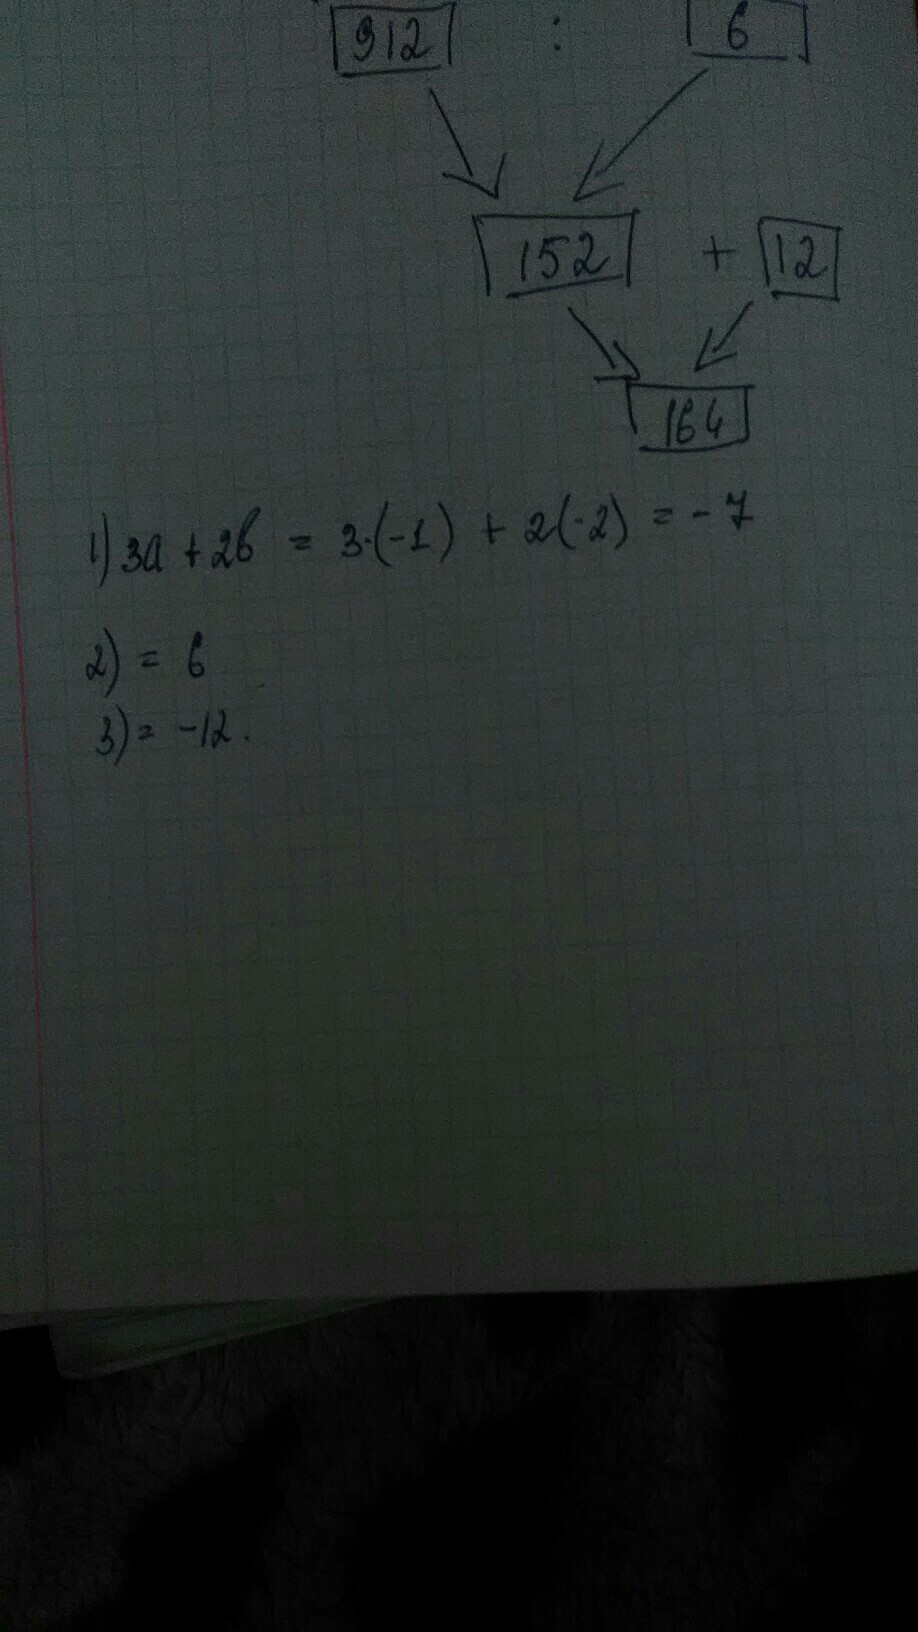 912 : 6
152 + 12
164
1) 3a + 2b = 3·(-1) + 2(-2) = - 7
2) = 6
3) = -12.